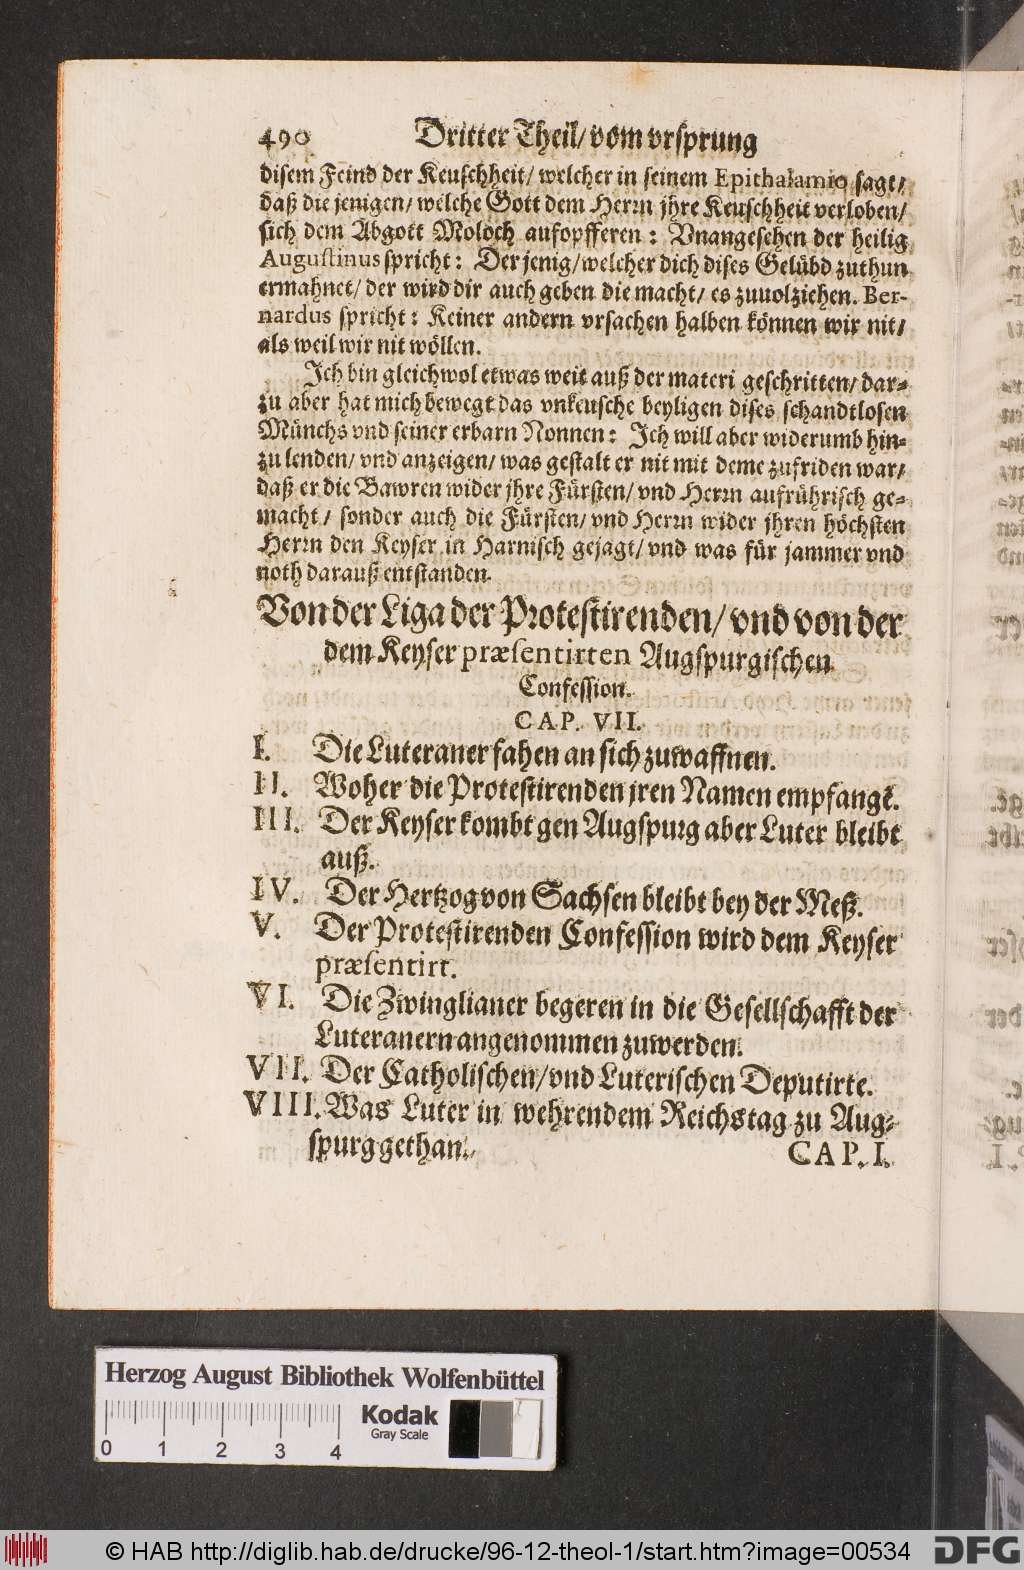 490 Dritter Theil/ vom vrsprung
disem Feind der Keuschheit/ welcher in seinem Epithalamio sagt/
daß die jenigen/ welche Gott dem Herrn jhre Keuschheit verloben/
sich dem Abgott Moloch aufopfferen: Vnangesehen der heilig
Augustinus spricht: Der jenig/ welcher dich dises Gelübd zuthun
ermahnet/ der wird dir auch geben die macht/ es zuuolziehen. Ber-
nardus spricht: Keiner andern vrsachen halben können wir nit/
als weil wir nit wöllen.
Ich bin gleichwol etwas weit auß der materi geschritten/ dar-
zu aber hat mich bewegt das vnkeusche beyligen dises schandtlosen
Münchs vnd seiner erbarn Nonnen: Ich will aber widerumb hin-
zu lenden/ vnd anzeigen/ was gestalt er nit mit deme zufriden war/
daß er die Bawren wider jhre Fürsten/ vnd Herrn aufrührisch ge-
macht/ sonder auch die Fürsten/ vnd Herrn wider jhren höchsten
Herrn den Keyser in Harnisch gejagt/ vnd was für jammer vnd
noth darauß entstanden.
Von der Liga der Protestirenden/ vnd von der
dem Keyser præsentirten Augspurgischen
Confession.
CAP. VII.
I. Die Luteraner fahen an sich zuwaffnen.
II. Woher die Protestirenden jren Namen empfangē.
III. Der Keyser kombt gen Augspurg aber Luter bleibt
auß.
IV. Der Hertzog von Sachsen bleibt bey der Meß.
V. Der Protestirenden Confession wird dem Keyser
præsentirt.
VI. Die Zwinglianer begeren in die Gesellschafft der
Luteranern angenommen zuwerden.
VII. Der Catholischen/ vnd Luterischen Deputirte.
VIII. Was Luter in wehrendem Reichstag zu Aug-
spurg gethan.
CAP. I.
Herzog August Bibliothek Wolfenbüttel
Kodak
Gray Scale
0 1 2 3 4
© HAB http://diglib.hab.de/drucke/96-12-theol-1/start.htm?image=00534
DFG